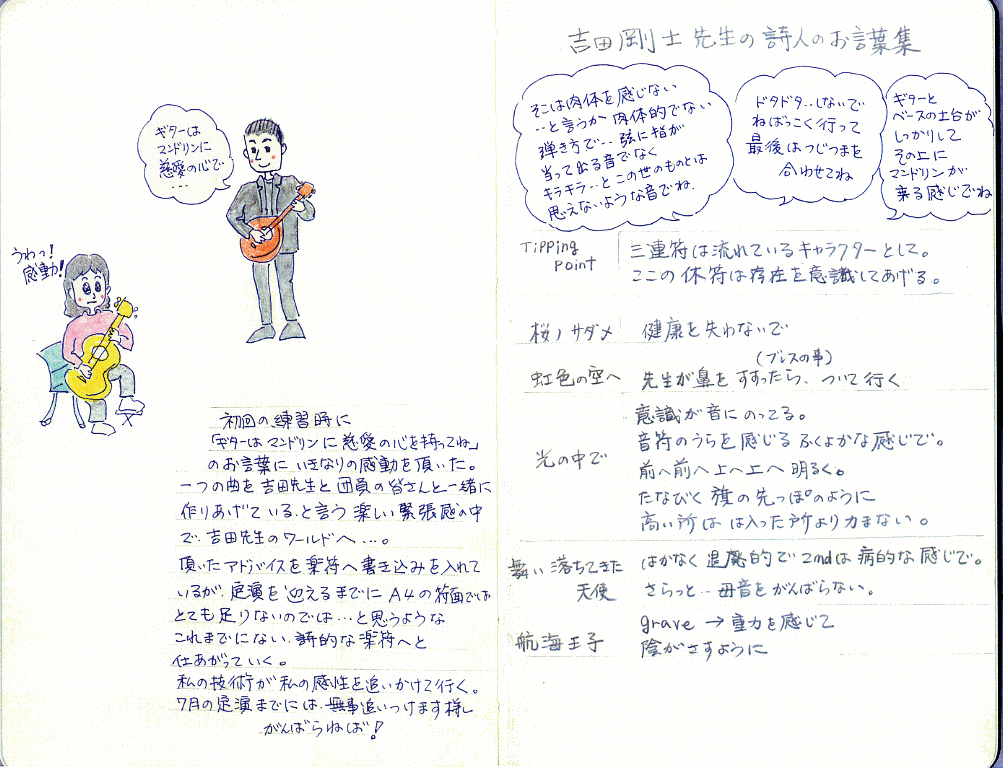 ギターは
マンドリンに
慈愛の心で
...
うわっ!
感動!
初回の練習時に
「ギターはマンドリンに慈愛の心を持ってね」
のお言葉にいきなりの感動を頂いた。
一つの曲を吉田先生と団員の皆さんと一緒に
作りあげている、と言う楽しい緊張感の中
で、吉田先生のワールドへ...。
頂いたアドバイスを楽符へ書き込みを入れて
いるが、定演を迎えるまでにA4の符面では
とても足りないのでは...と思うような
これまでにない、詩的な楽符へと
仕あがっていく。
私の技術が私の感性を追いかけて行く。
7月の定演までには、無事追いつけます様に
がんばらねば!
吉田剛士先生の詩人のお言葉集
そこは肉体を感じない
..と言うか肉体的でない
弾き方で..弦に指が
当って出る音でなく
キラキラ..とこの世のものとは
思えないような音でね.
ドタドタ..しないで
ねばっこく行って
最後はつじつまを
合わせてね
ギターと
ベースの土台が
しっかりして
その上に
マンドリンが
乗る感じでね
Tipping Point 三連符は流れているキャラクターとして。
ここの休符は存在を意識してあげる。
桜ノサダメ 健康を失わないで
(ブレスの事)
虹色の空へ 先生が鼻をすすったら、ついて行く
光の中で 意識が音にのってる。
音符のうらを感じるふくよかな感じで。
前へ前へ上へ上へ明るく。
たなびく旗の先っぽのように
高い所は は入った所より力まない。
舞い落ちてきた天使 はかなく退廃的で2ndは病的な感じで。
さらっと..母音をがんばらない。
航海王子 grave → 重力を感じて
陰がさすように